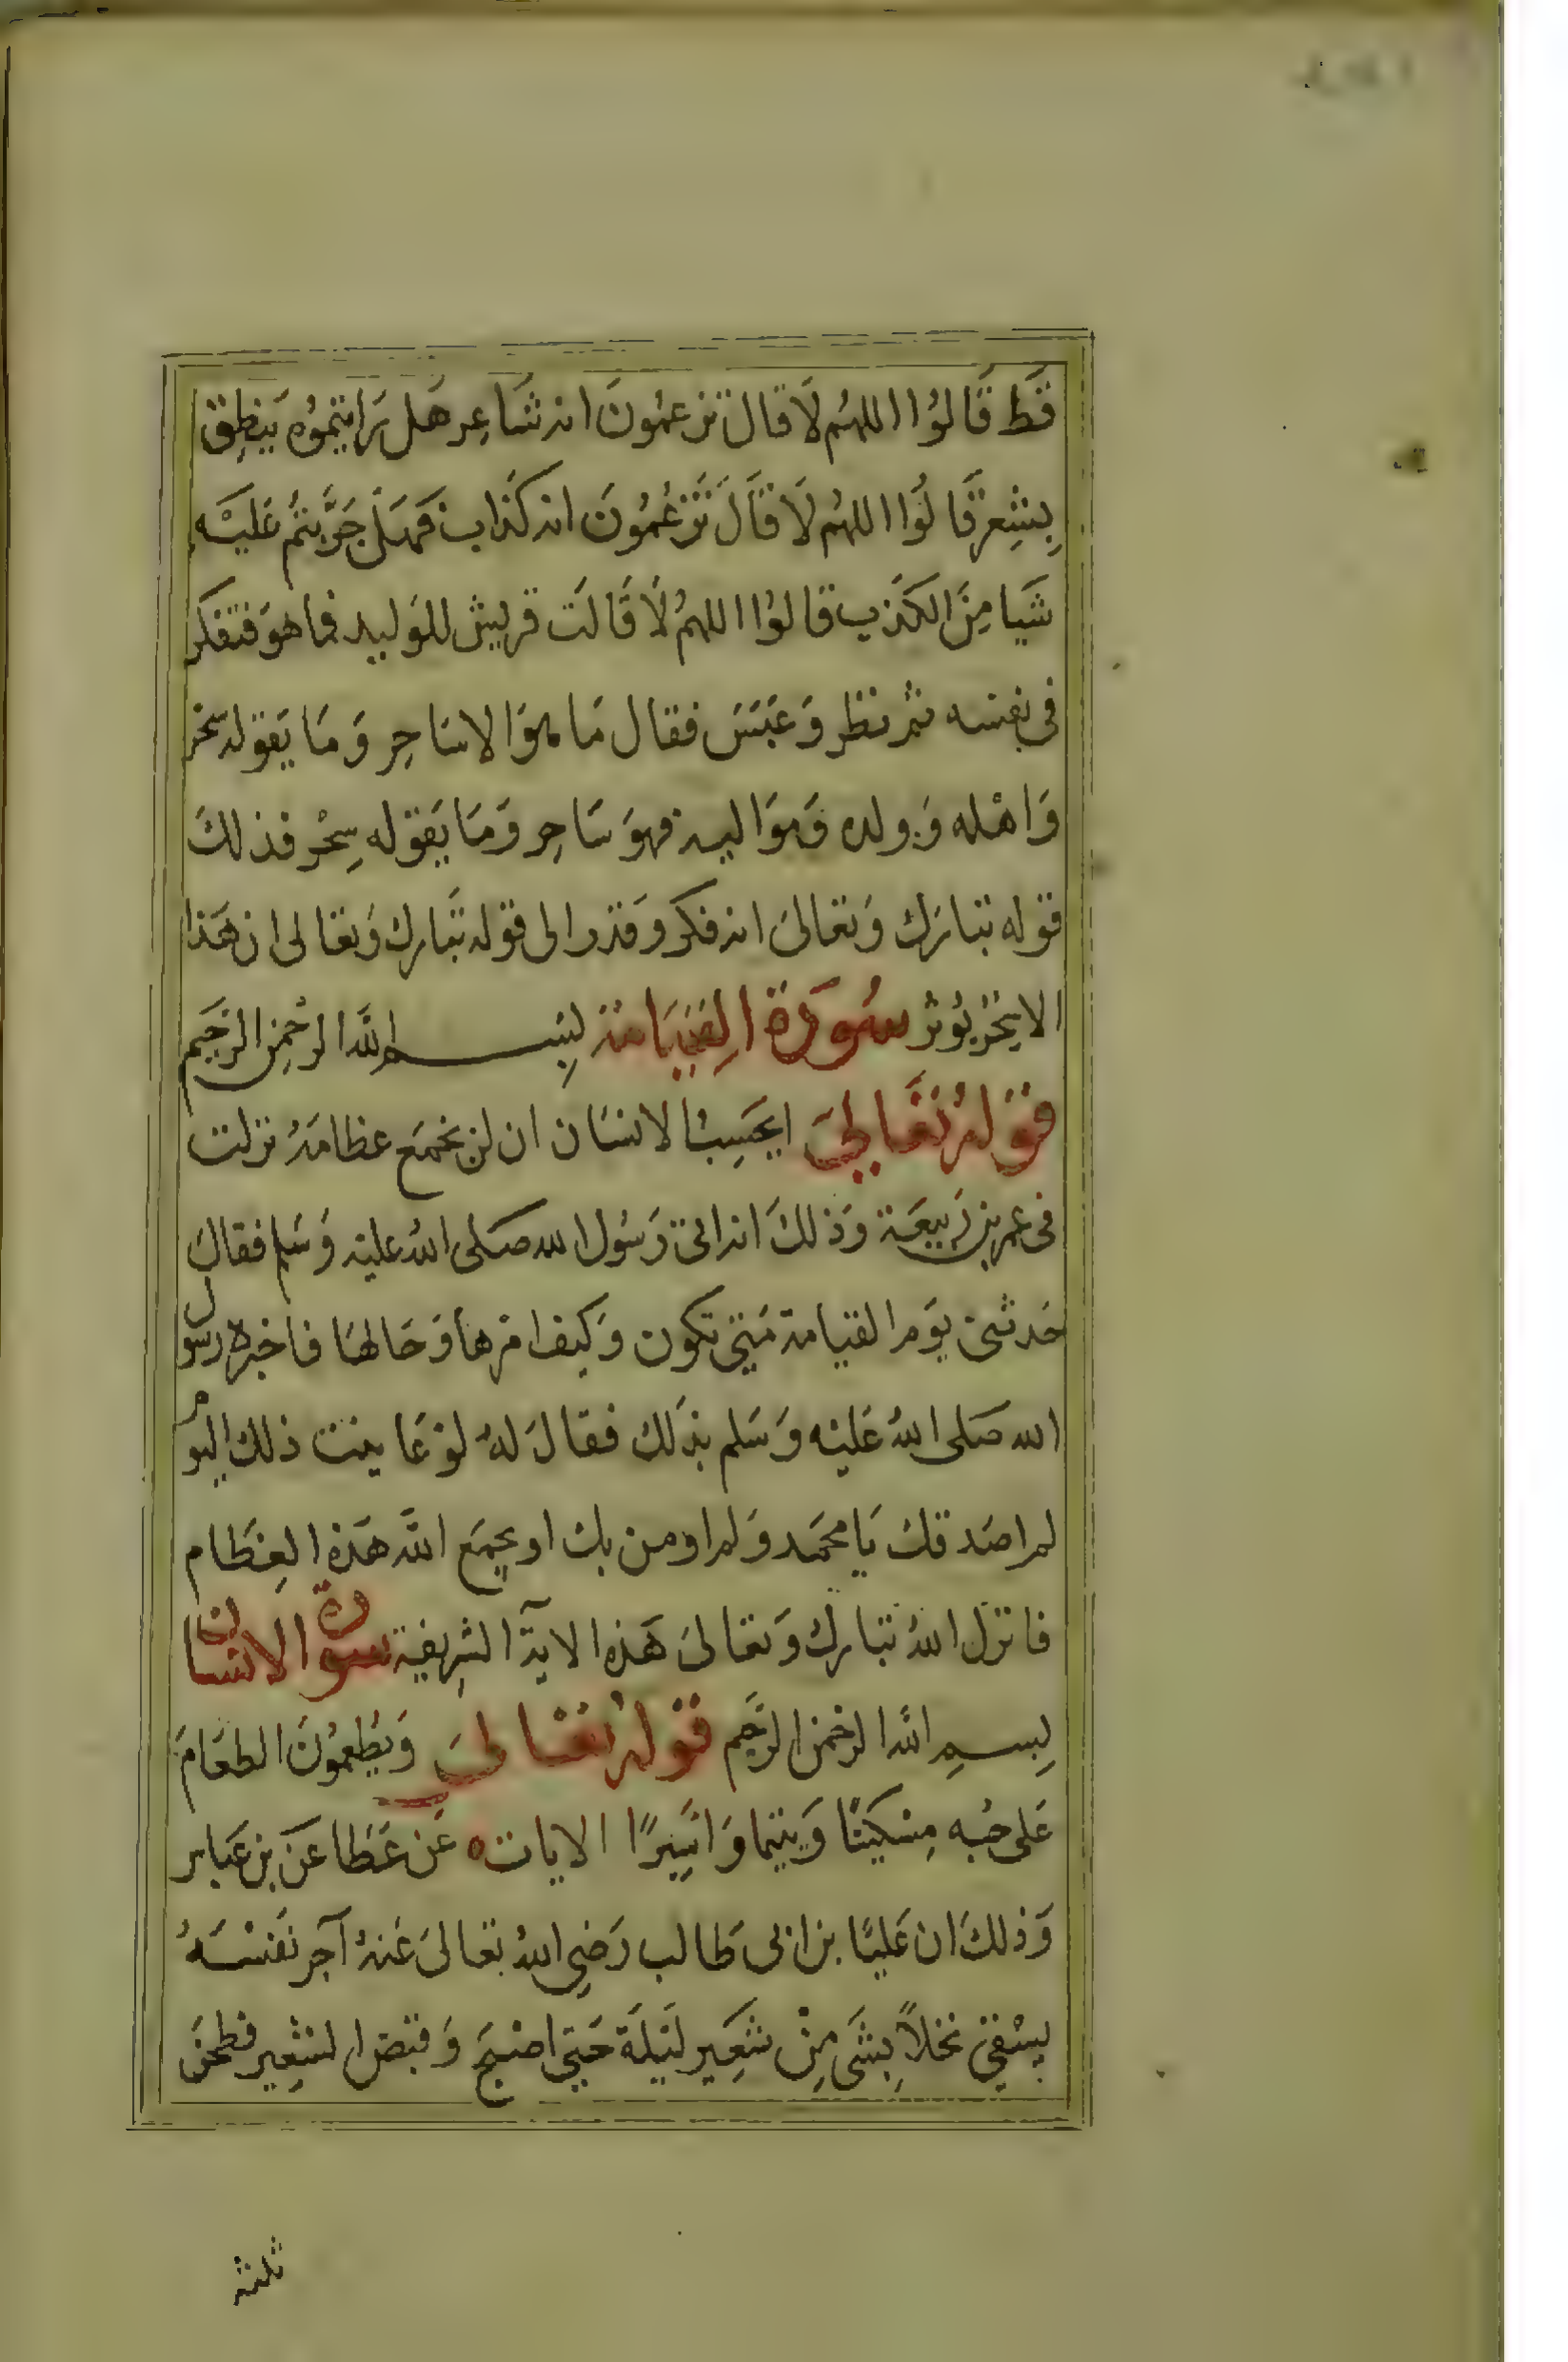 قَط قَالُوُا اللهُم لَا قَالَ تزعمُونَ انه شَاعِر هَل رَايتموُه يَنطِق
بِشِعر قَالُوا اللهُم لَا قَالَ تَزعُمُونَ انه كَذاب فَهَل جَرَّبتُم عَليَه
شَيا مِنَ الكَذب قالوُا اللهمُ لَا قَالَت قريش للوَليد فما هوَ فتفكر
فى نفسه ثم نظر وَعَبَسَ فقال مَا هوَ الا سَاحِر وَمَا يَقوله سحر
وَاهْله وَولده وَموَاليه فهوَ سَاحِر وَمَا يَقوله سِحْر فذلكَ
قوله تبارَك وَتعَالىَ انه فكر وَقدر الى قوله تبَارك وَتعَالى ان هَذا
الا سحْر يوُثر سُورَة القِيَامَة بِسـم الله الرحْمنِ الرحَيم
قوَلهُ تعَالىَ ايحَسِبُ الانسَان ان لن نجمَع عظامَهُ نزلت
فى عمر بن رَبيعَة وَذلكَ انه اتى رَسُول الله صَلى اللهُ عليَه وَسَلم فقالَ
حَدثنى يوَم القيامة مَتى تكون وَكيف امرها وَحَالهَا فاخبره رسول
الله صَلى اللهُ عَليَه وَسَلم بذَلك فقالَ لهُ لوْ عَاينت ذلك اليوم
لم اصَدقك يَا محمَد وَلم اومن بك او يجمَع الله هَذه العِظَام
فانزل اللهُ تبارك وَتعَالىَ هَذه الايَة الشرِيفة سورة الانسَان
بِسـمِ الله الرحْمن الرَّحيم قوَلهُ تعْالىَ وَيُطِعمُونَ الطعَامَ
عَلى حُبه مِسْكينًا وَيتيما وَاسَيرًا الايات ه عَن عَطَا عَن بن عَباس
وَذلكَ ان عَليًا بن ابى طَالب رَضىِ اللهُ تعَالىَ عَنهُ آجر نَفسَهُ
يسْقى نخلاً بِشَى مِنْ شَعِير لَيلَة حَتى اصْبحَ وَقبَض الشعِير فطحَن
ثلثه